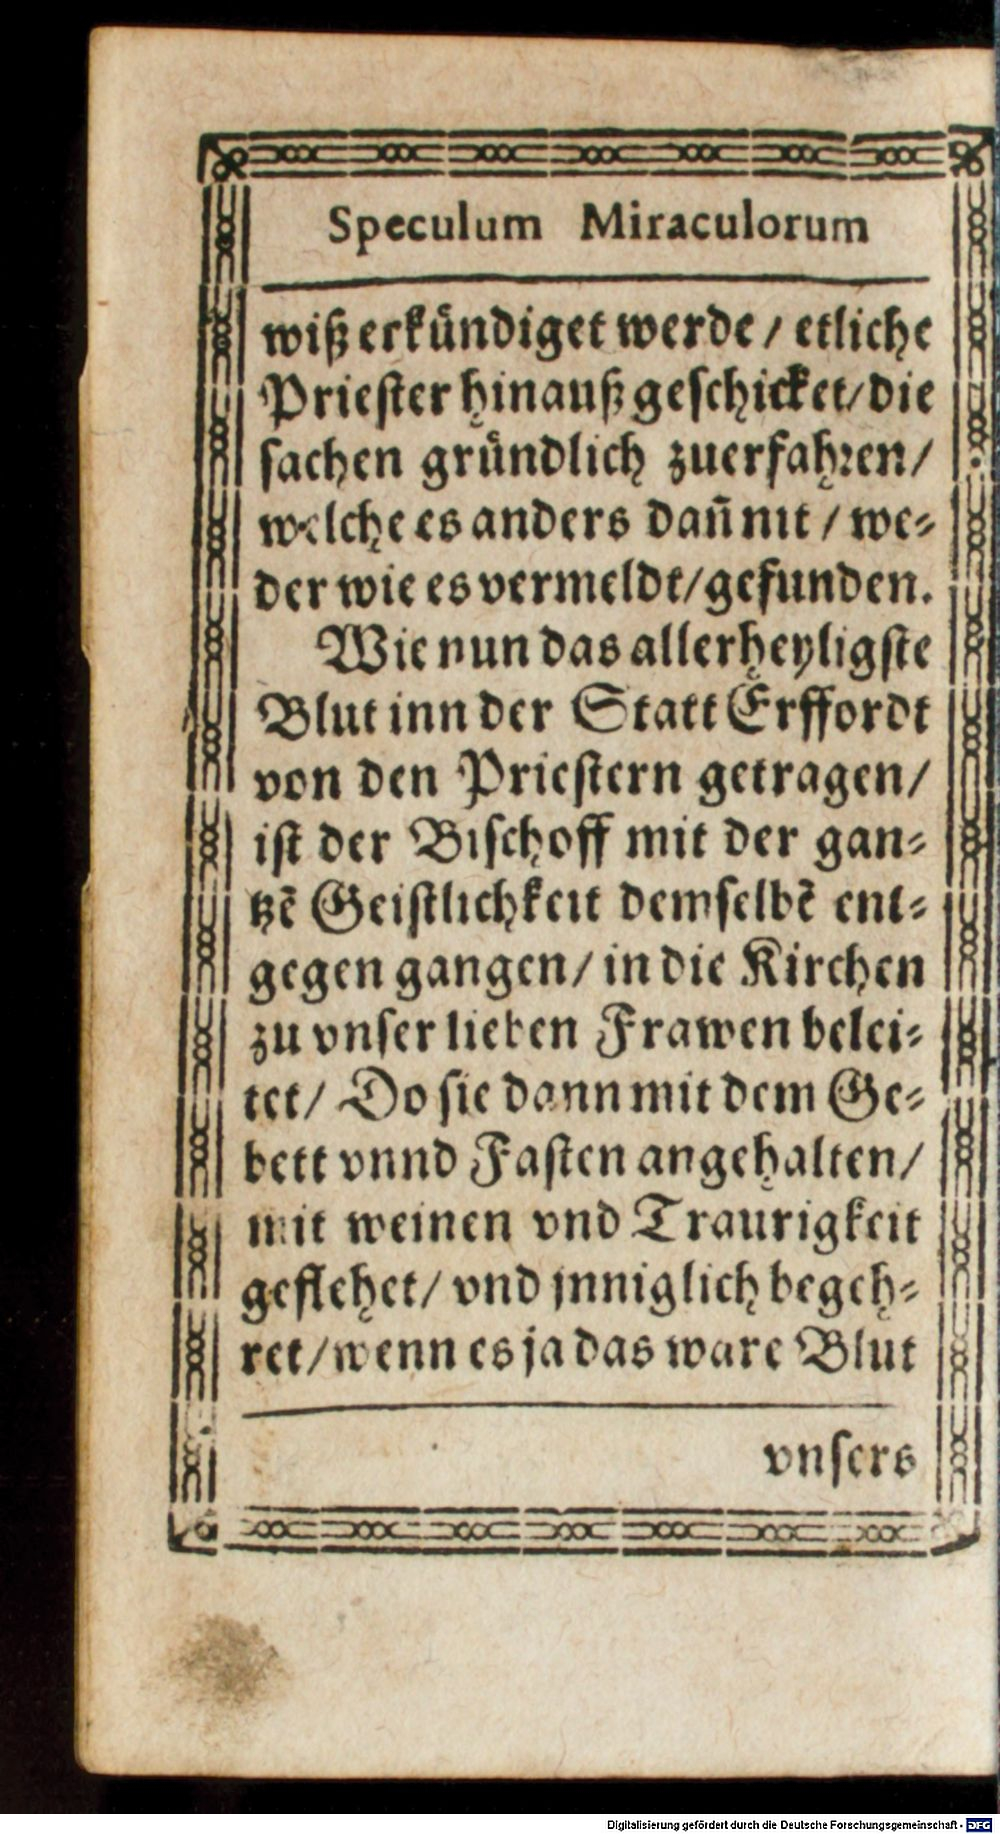 Speculum Miraculorum
wiß erkündiget werde / etliche
Priester hinauß geschicket/ die
sachen gründlich zuerfahren/
welche es anders dañ nit / we⸗
der wie es vermeldt/ gefunden.
Wie nun das allerheyligste
Blut inn der Statt Erffordt
von den Priestern getragen/
ist der Bischoff mit der gan⸗
tzẽ Geistlichkeit demselbẽ ent⸗
gegen gangen/ in die Kirchen
zu vnser lieben Frawen belei⸗
tet/ Do sie dann mit dem Ge⸗
bett vnnd Fasten angehalten/
mit weinen vnd Traurigkeit
geflehet/ vnd jnniglich begeh⸗
ret/ wenn es ja das ware Blut
vnsers
Digitalisierung gefördert durch die Deutsche Forschungsgemeinschaft - DFG